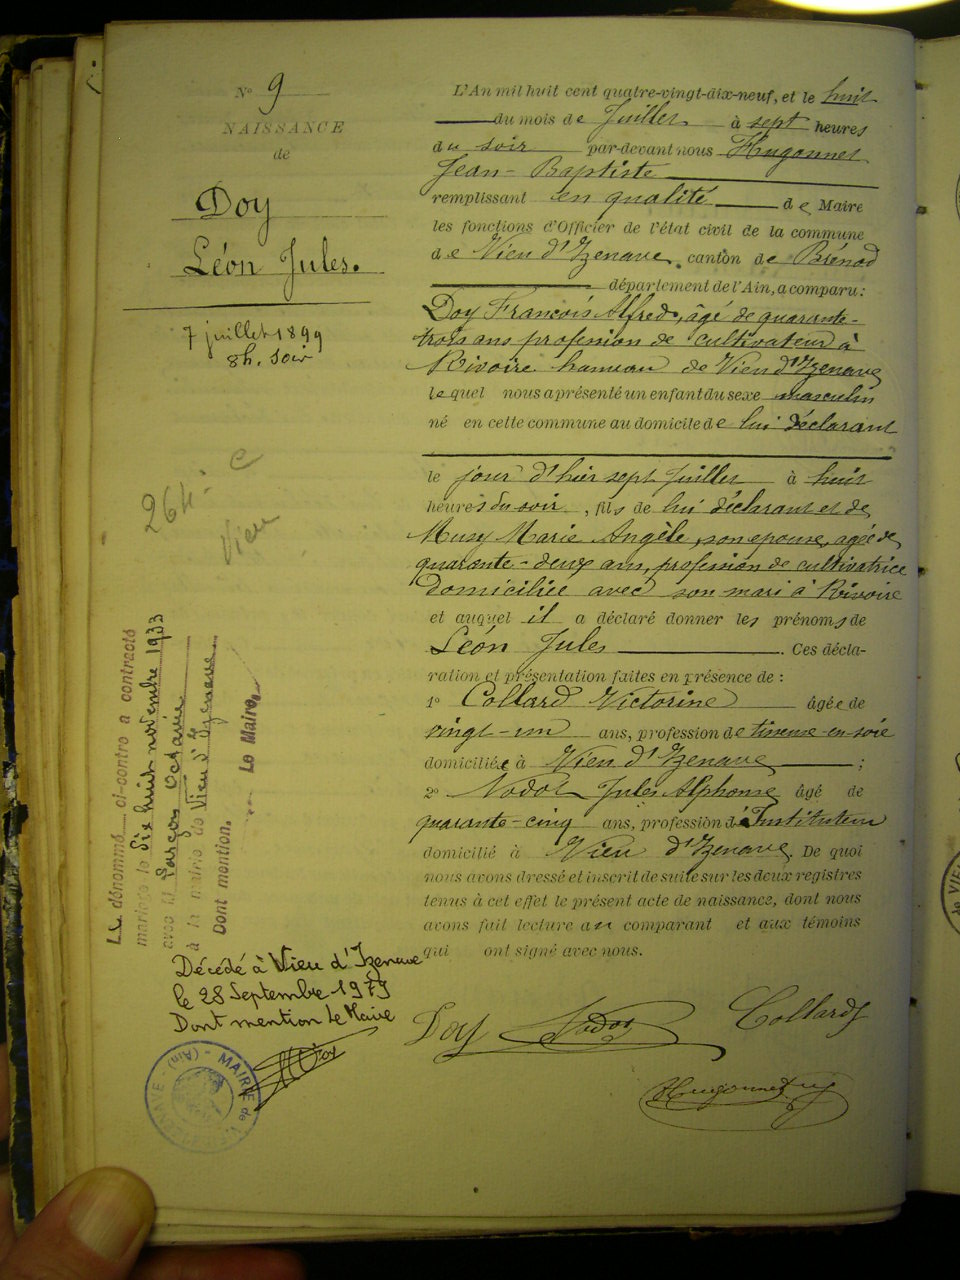 N° 9
NAISSANCE
de
Doy
Léon Jules.
7 juillet 1899
8h. soir
264
Vieu
Le dénommé ci-contre a contracté
mariage le Dix huit novembre 1933
avec M Octavie
à la mairie de Vieu d'Izenave
Dont mention.
Le Maire,
Décédé à Vieu d'Izenave
le 28 Septembre 1979
Dont mention Le Maire
MAIRIE de (Ain)
L'An mil huit cent quatre-vingt-dix-neuf, et le huit
du mois de Juillet à sept heures
du soir par-devant nous Hugonnet
Jean-Baptiste
remplissant en qualité de Maire
les fonctions d'Officier de l'état civil de la commune
de Vieu d'Izenave, canton de Brénod
département de l'Ain, a comparu:
Doy François Alfred, âgé de quarante-
trois ans profession de cultivateur à
Rivoire hameau de Vieu d'Izenave
lequel nous a présenté un enfant du sexe masculin
né en cette commune au domicile de lui déclarant
le jour d'hier sept Juillet à huit
heures du soir, fils de lui déclarant et de
Musy Marie Angèle, son epouse, agée de
quarante-deux ans, profession de cultivatrice
domiciliée avec son mari à Rivoire
et auquel il a déclaré donner les prénoms de
Léon Jules. Ces décla-
ration et présentation faites en présence de :
1° Collard Victorine âgée de
vingt-un ans, profession de tisseuse en soie
domiciliée à Vieu d'Izenave ;
2° Nodot Jules Alphonse âgé de
quarante-cinq ans, profession d'Instituteur
domicilié à Vieu d'Izenave. De quoi
nous avons dressé et inscrit de suite sur les deux registres
tenus à cet effet le présent acte de naissance, dont nous
avons fait lecture au comparant et aux témoins
qui ont signé avec nous.
Doy Nodot Collard
Hugonnet